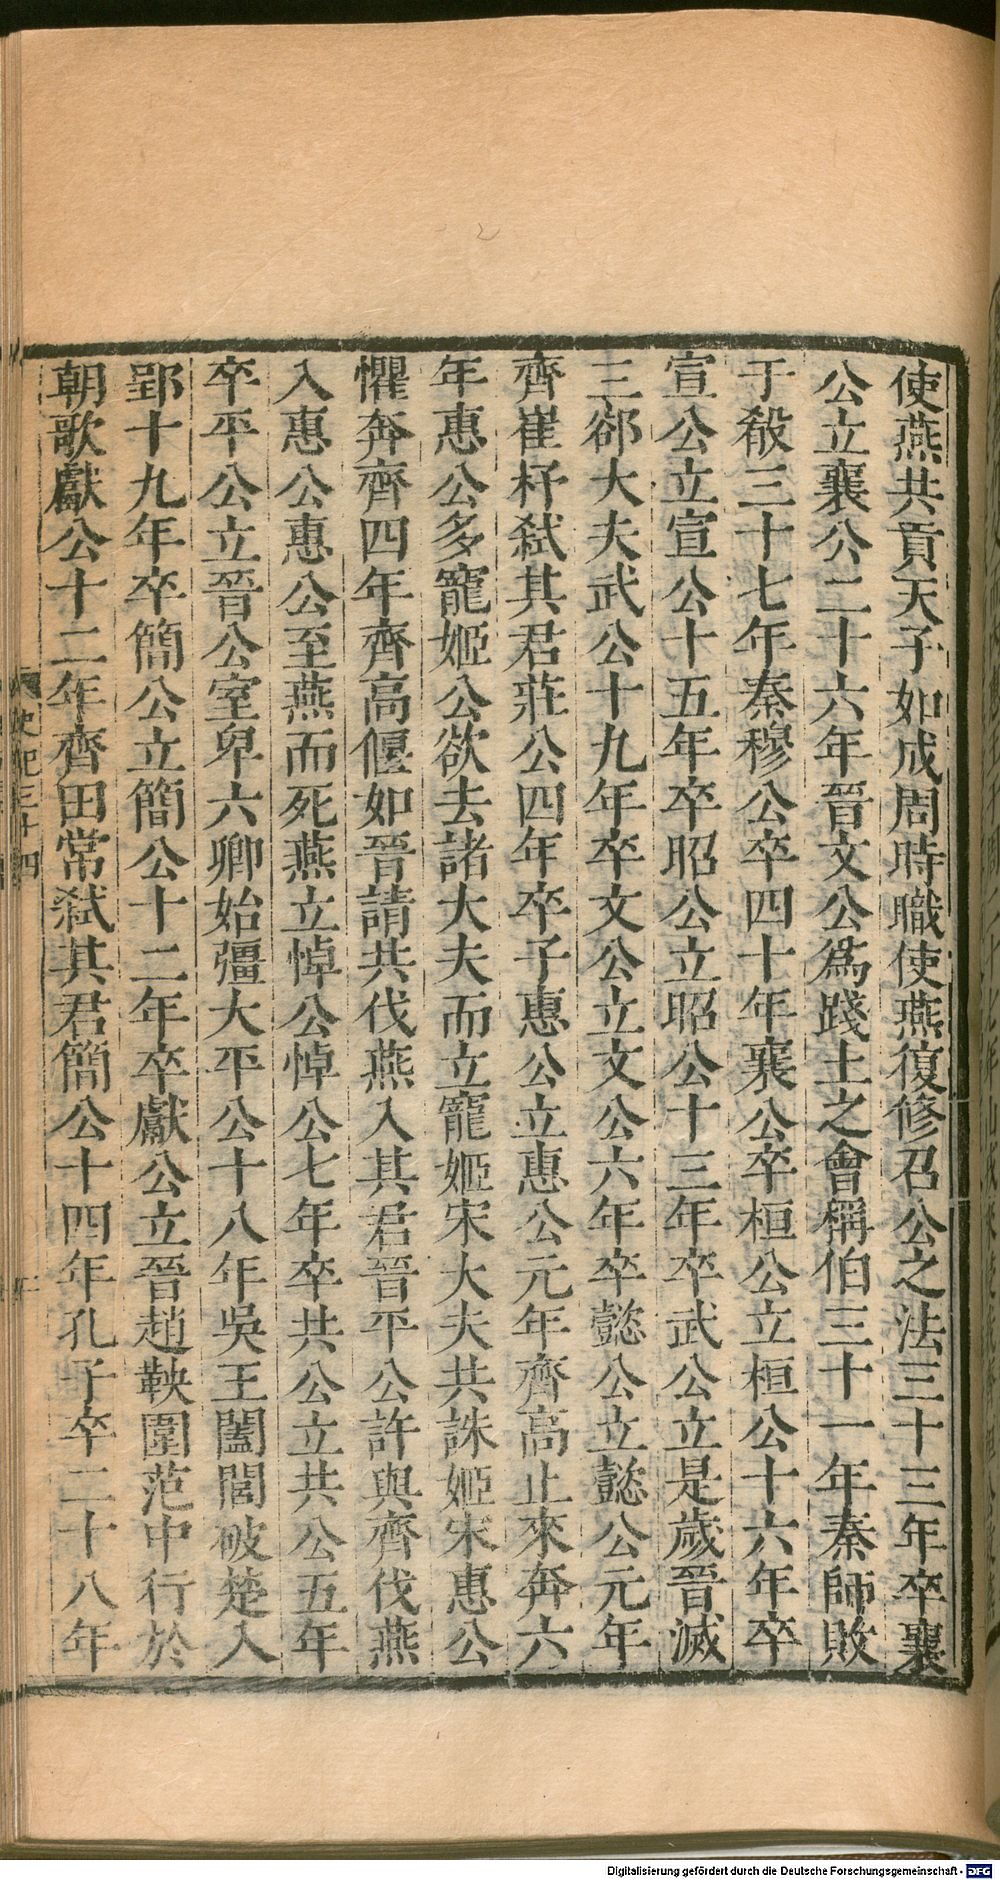 使燕共貢天子如成周時職使燕復修召公之法三十三年卒襄
公立襄公二十六年晉文公爲踐土之會稱伯三十一年秦師敗
于殽三十七年秦穆公卒四十年襄公卒桓公立桓公十六年卒
宣公立宣公十五年卒昭公立昭公十三年卒武公立是歲晉滅
三郤大夫武公十九年卒文公立文公六年卒懿公立懿公元年
齊崔杼弑其君莊公四年卒子惠公立惠公元年齊高止來奔六
年惠公多寵姬公欲去諸大夫而立寵姬宋大夫共誅姬宋惠公
懼奔齊四年齊高偃如晉請共伐燕入其君晉平公許與齊伐燕
入惠公惠公至燕而死燕立悼公悼公七年卒共公立共公五年
卒平公立晉公室卑六卿始彊大平公十八年吳王闔閭破楚入
郢十九年卒簡公立簡公十二年卒獻公立晉趙鞅圍范中行於
朝歌獻公十二年齊田常弑其君簡公十四年孔子卒二十八年
史記三十四
Digitalisierung gefördert durch die Deutsche Forschungsgemeinschaft - DFG